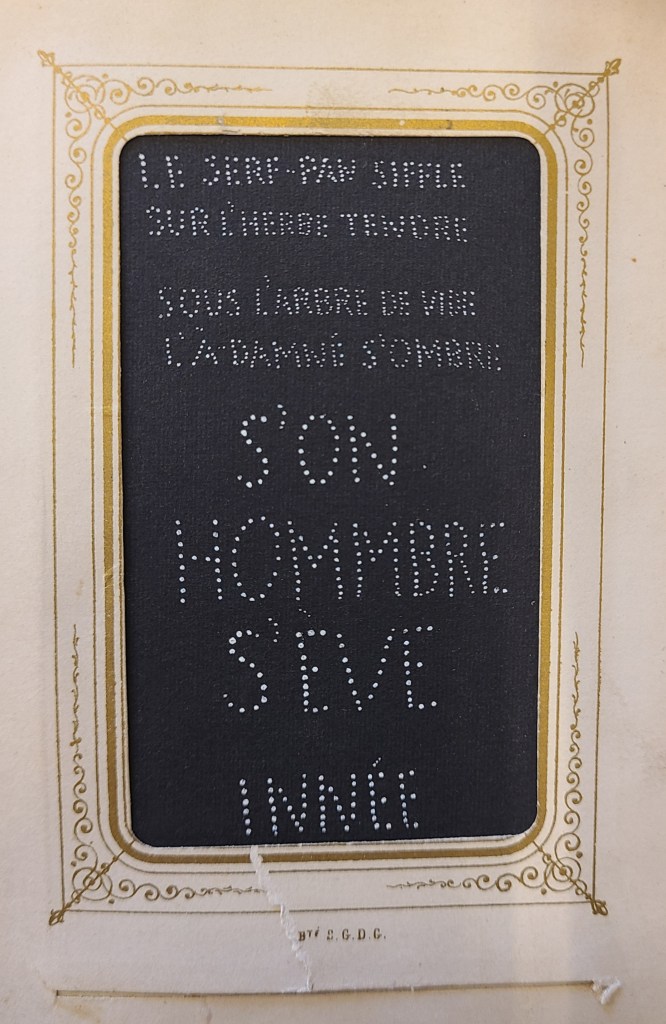 LE SERF-PAN SIFFLE
SUR L'HERBE TENDRE
SOUS L'ARBRE DE VIDE
L'A-DAMNÉ S'OMBRE
S'ON
HOMMBRE
S'ÈVE
INNÉE
Bᵀᴱ S.G.D.G.